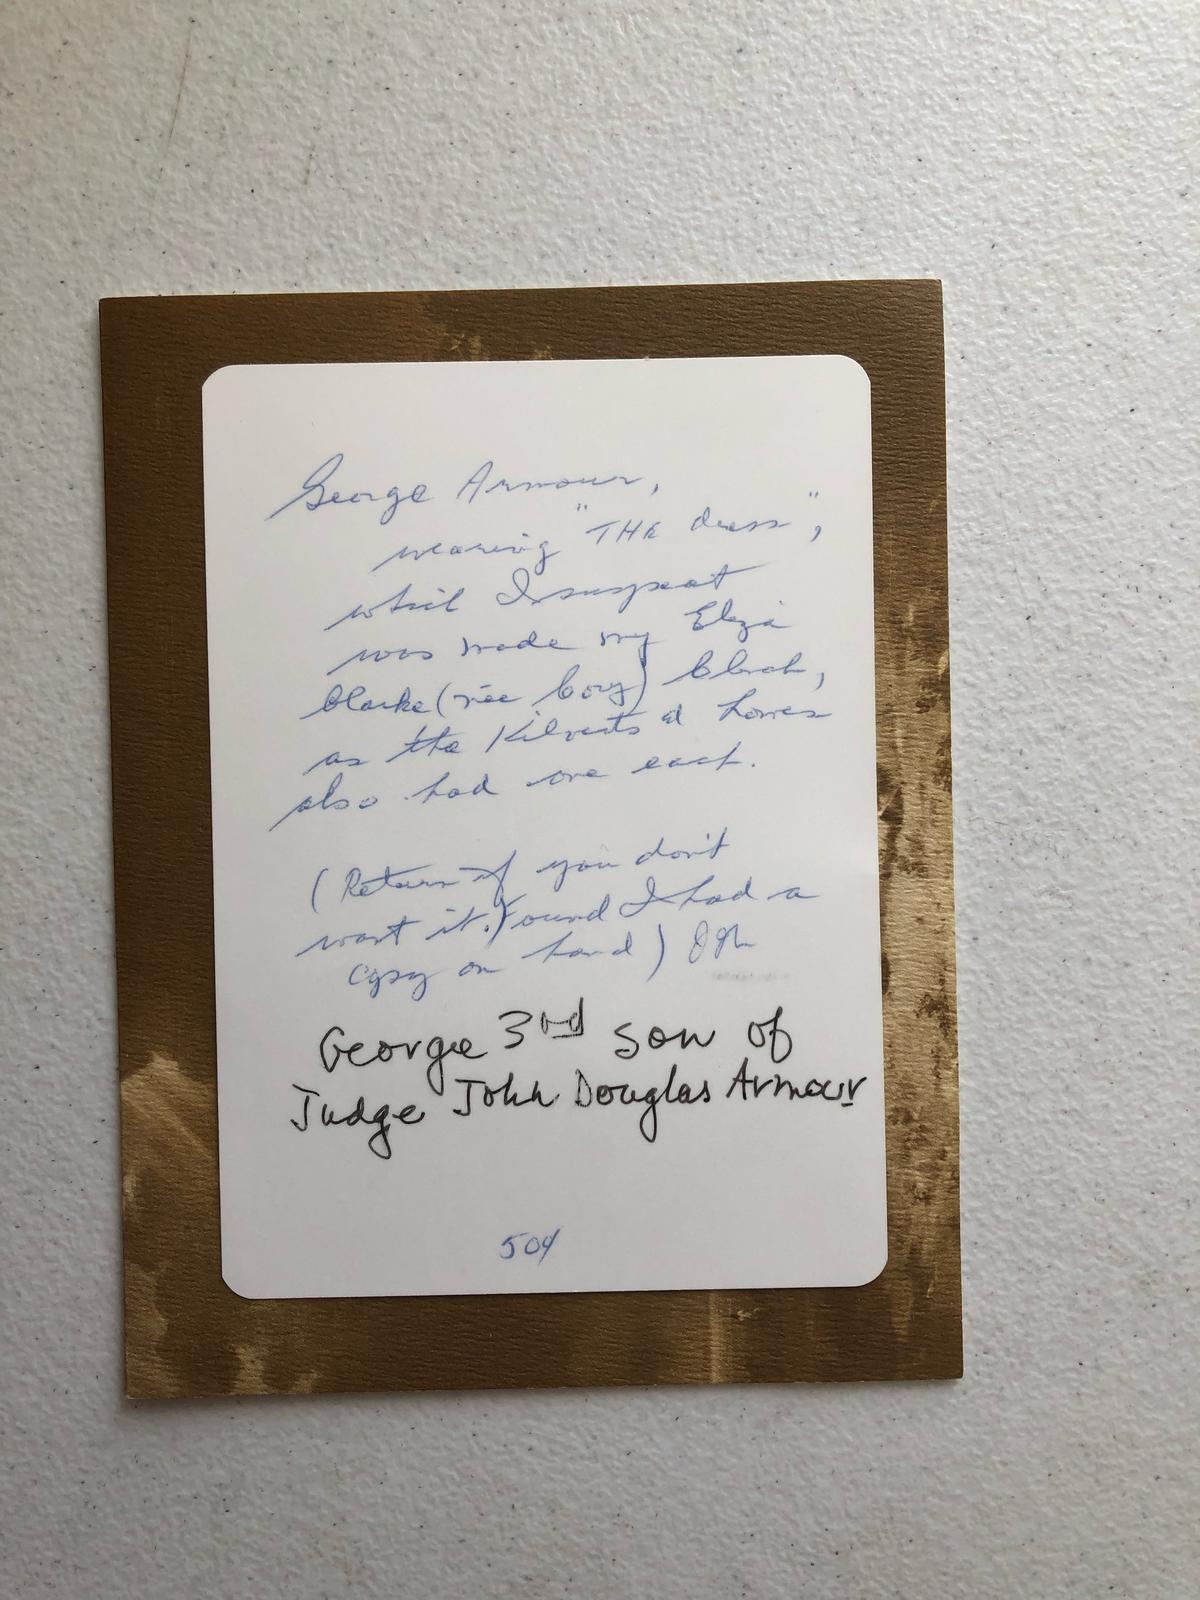 George Armour,
wearing "THE dress",
which I suspect
was made my Eliza
Clarke (née Cory) Clark,
as the Kilverts at homes
also had one each.
(Return if you don't
want it. Found I had a
copy on hand)
George 3rd son of
Judge John Douglas Armour
504